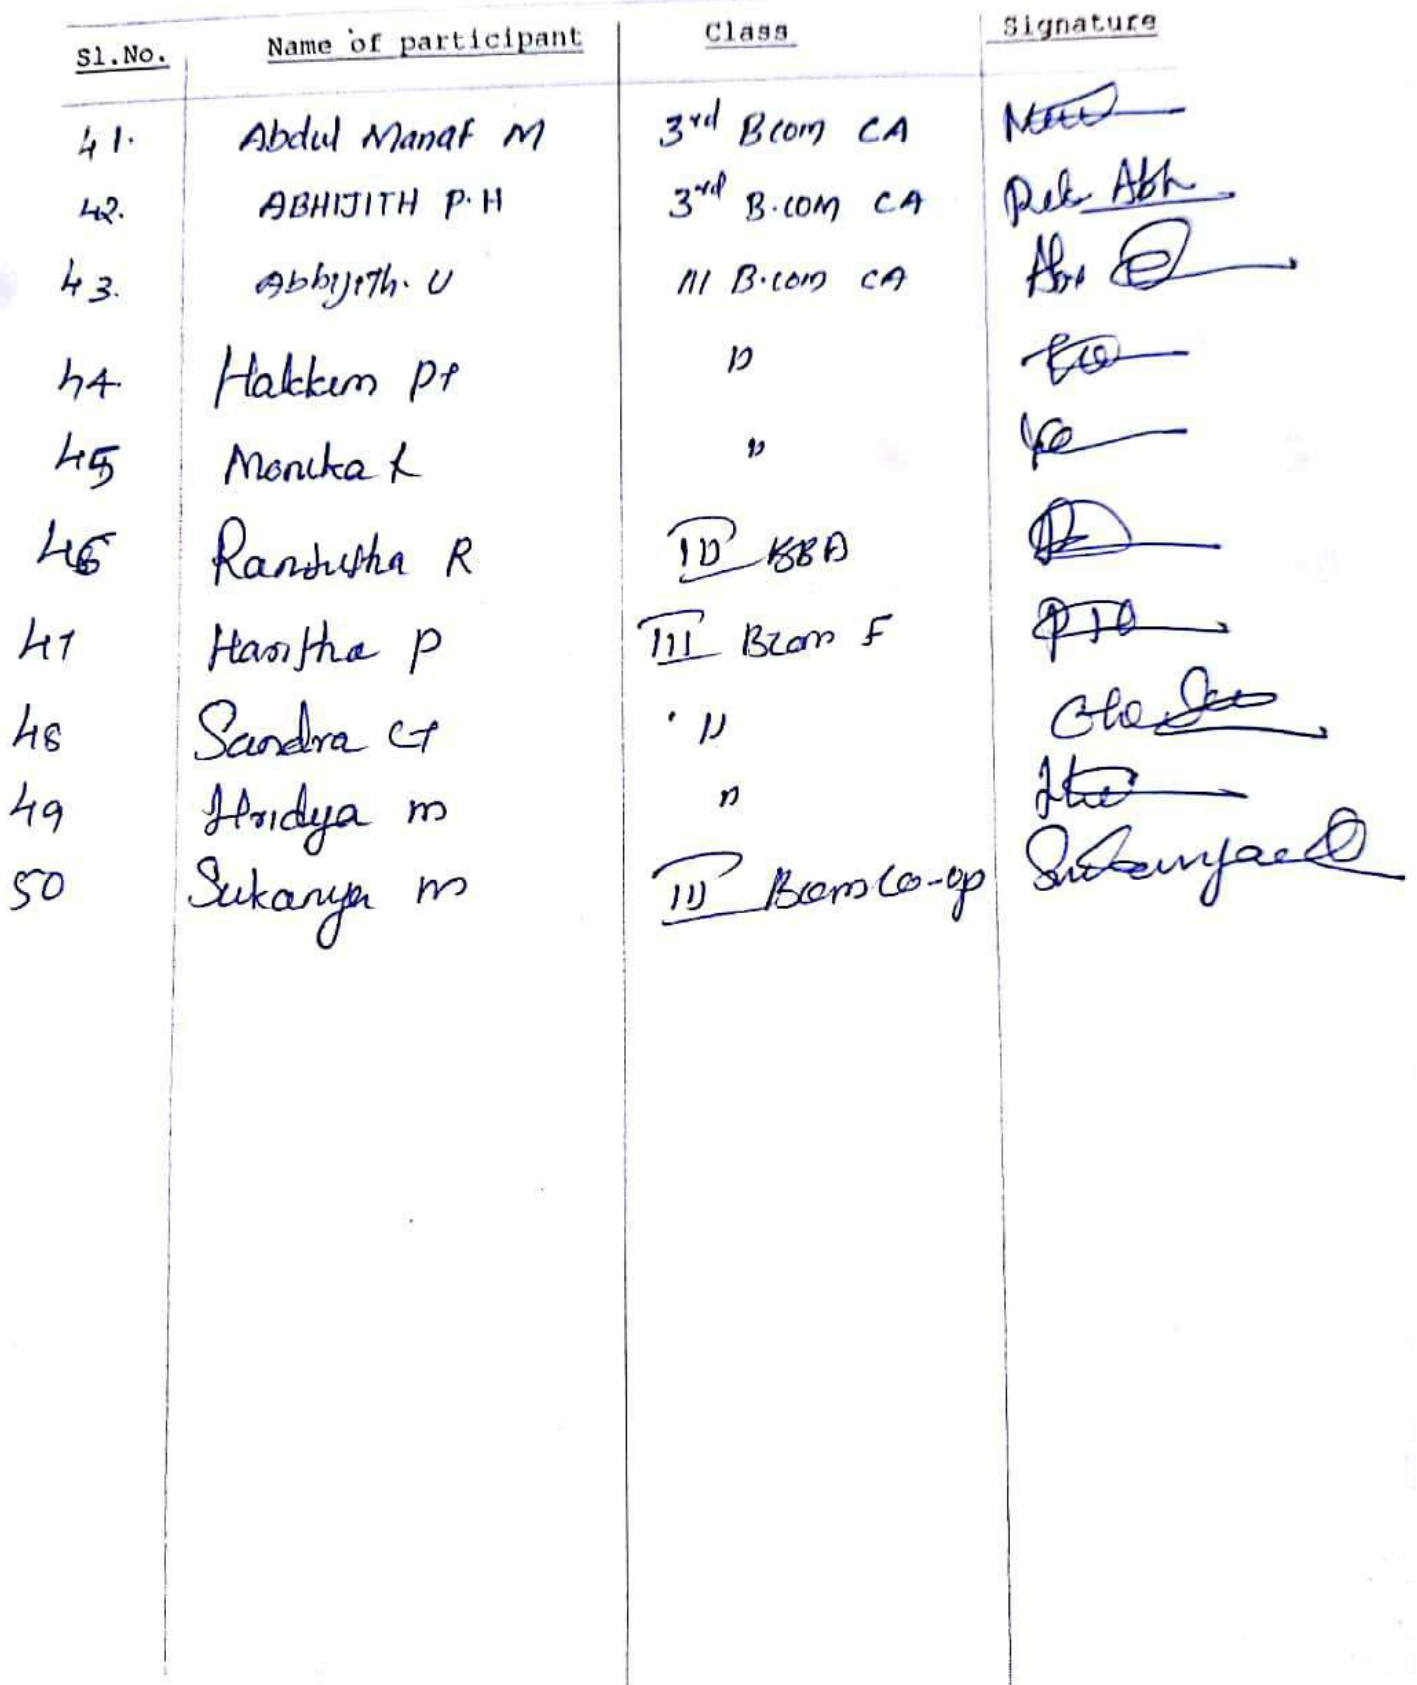 Sl.No. Name of participant Class Signature
41. Abdul Manaf M 3rd Bcom CA
42. ABHIJITH P.H 3rd B.com CA Abh
43. Abhijith. U III B.com CA
44. Hakkim PP "
45 Monika K "
46 Ranjitha R III BBA
47 Haritha P III Bcom F
48 Sandra G "
49 Hridya m "
50 Sukanya m III Bcom Co-op Sukanya